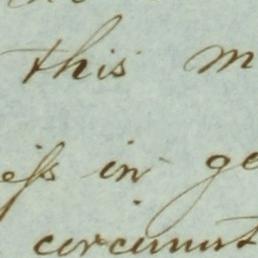 this m
ess in ge
circumst